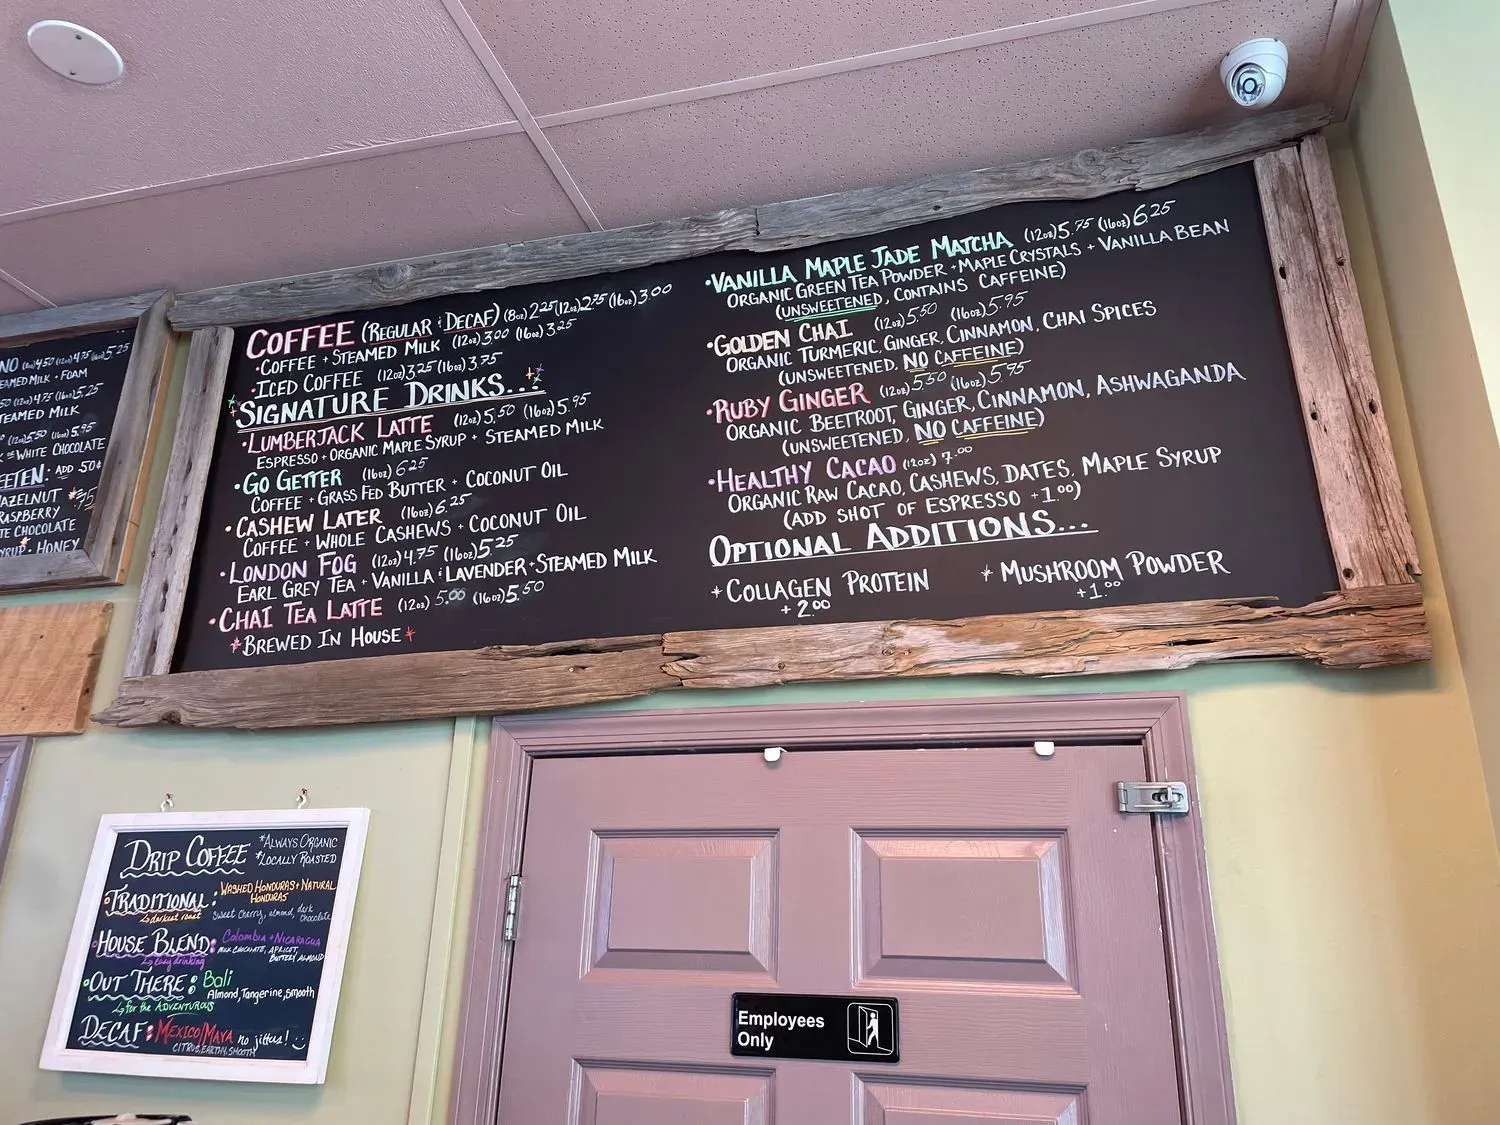 NO (8oz) 4.50 (12oz) 4.75 (16oz) 5.25
EAMED MILK + FOAM
(12oz) 4.75 (16oz) 5.25
TEAMED MILK
(12oz) 5.50 (16oz) 5.95
WHITE CHOCOLATE
EETEN: ADD .50¢
AZELNUT
RASPBERRY
TE CHOCOLATE
YRUP · HONEY
COFFEE (REGULAR & DECAF) (8oz) 2.25 (12oz) 2.75 (16oz) 3.00
· COFFEE + STEAMED MILK (12oz) 3.00 (16oz) 3.25
· ICED COFFEE (12oz) 3.25 (16oz) 3.75
SIGNATURE DRINKS...
· LUMBERJACK LATTE (12oz) 5.50 (16oz) 5.95
ESPRESSO + ORGANIC MAPLE SYRUP + STEAMED MILK
· GO GETTER (16oz) 6.25
COFFEE + GRASS FED BUTTER + COCONUT OIL
· CASHEW LATER (16oz) 6.25
COFFEE + WHOLE CASHEWS + COCONUT OIL
· LONDON FOG (12oz) 4.75 (16oz) 5.25
EARL GREY TEA + VANILLA & LAVENDER + STEAMED MILK
· CHAI TEA LATTE (12oz) 5.00 (16oz) 5.50
*BREWED IN HOUSE*
· VANILLA MAPLE JADE MATCHA (12oz) 5.75 (16oz) 6.25
ORGANIC GREEN TEA POWDER + MAPLE CRYSTALS + VANILLA BEAN
(UNSWEETENED, CONTAINS CAFFEINE)
· GOLDEN CHAI (12oz) 5.50 (16oz) 5.95
ORGANIC TURMERIC, GINGER, CINNAMON, CHAI SPICES
(UNSWEETENED, NO CAFFEINE)
· RUBY GINGER (12oz) 5.50 (16oz) 5.95
ORGANIC BEETROOT, GINGER, CINNAMON, ASHWAGANDA
(UNSWEETENED, NO CAFFEINE)
· HEALTHY CACAO (12oz) 7.00
ORGANIC RAW CACAO, CASHEWS, DATES, MAPLE SYRUP
(ADD SHOT OF ESPRESSO +1.00)
OPTIONAL ADDITIONS...
* COLLAGEN PROTEIN
+2.00
* MUSHROOM POWDER
+1.00
DRIP COFFEE
*ALWAYS ORGANIC
*LOCALLY ROASTED
TRADITIONAL: WASHED HONDURAS + NATURAL
HONDURAS
darkest roast
sweet cherry, almond, dark
chocolate
HOUSE BLEND: COLOMBIA + NICARAGUA
easy drinking
MILK CHOCOLATE, APRICOT,
BUTTERY ALMOND
OUT THERE: Bali
Almond, Tangerine, Smooth
for the ADVENTUROUS
DECAF: MEXICO/MAYA no jitters!
CITRUS, EARTHY, SMOOTH
Employees
Only